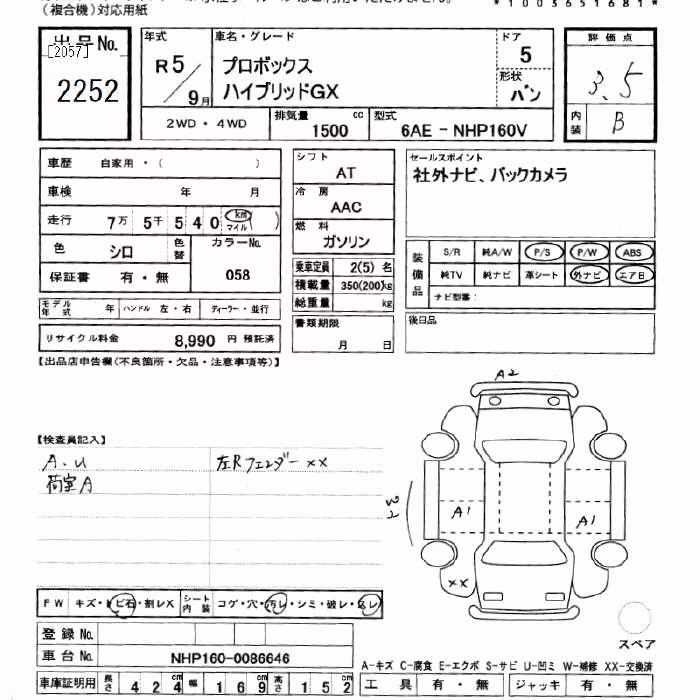 (複合機)対応用紙
*1003651681*
出品No.
[2057]
2252
年式
R5/9月
車名・グレード
プロボックス
ハイブリッドGX
ドア
5
形状
バン
評価点
3.5
内装
B
2WD・4WD
排気量
1500 cc
型式
6AE-NHP160V
車歴 自家用・( )
車検 年 月
走行 7万 5千 5 4 0 km マイル ( )
色 シロ 色替
カラーNo.
058
保証書 有・無
モデル年式 年 ハンドル 左・右 ディーラー・並行
リサイクル料金 8,990 円 預託済
シフト
AT
冷房
AAC
燃料
ガソリン
乗車定員 2(5) 名
積載量 350(200)kg
総重量 kg
書類期限
月 日
セールスポイント
社外ナビ、バックカメラ
装備品
S/R 純A/W P/S P/W ABS
純TV 純ナビ 革シート 外ナビ エアB
ナビ型番:
後日品
【出品店申告欄(不良箇所・欠品・注意事項等)】
【検査員記入】
A.U
荷室A
左Rフェンダー××
A2
A1
A1
××
FW キズ・ヒ石・割レX シート内装 コゲ・穴・汚レ・シミ・破レ・スレ
登録No.
車台No. NHP160-0086646
車庫証明用 長さ 4 2 4 cm 幅 1 6 9 cm 高さ 1 5 2 cm
スペア
A-キズ C-腐食 E-エクボ S-サビ U-凹ミ W-補修 XX-交換済
工具 有・無 ジャッキ 有・無